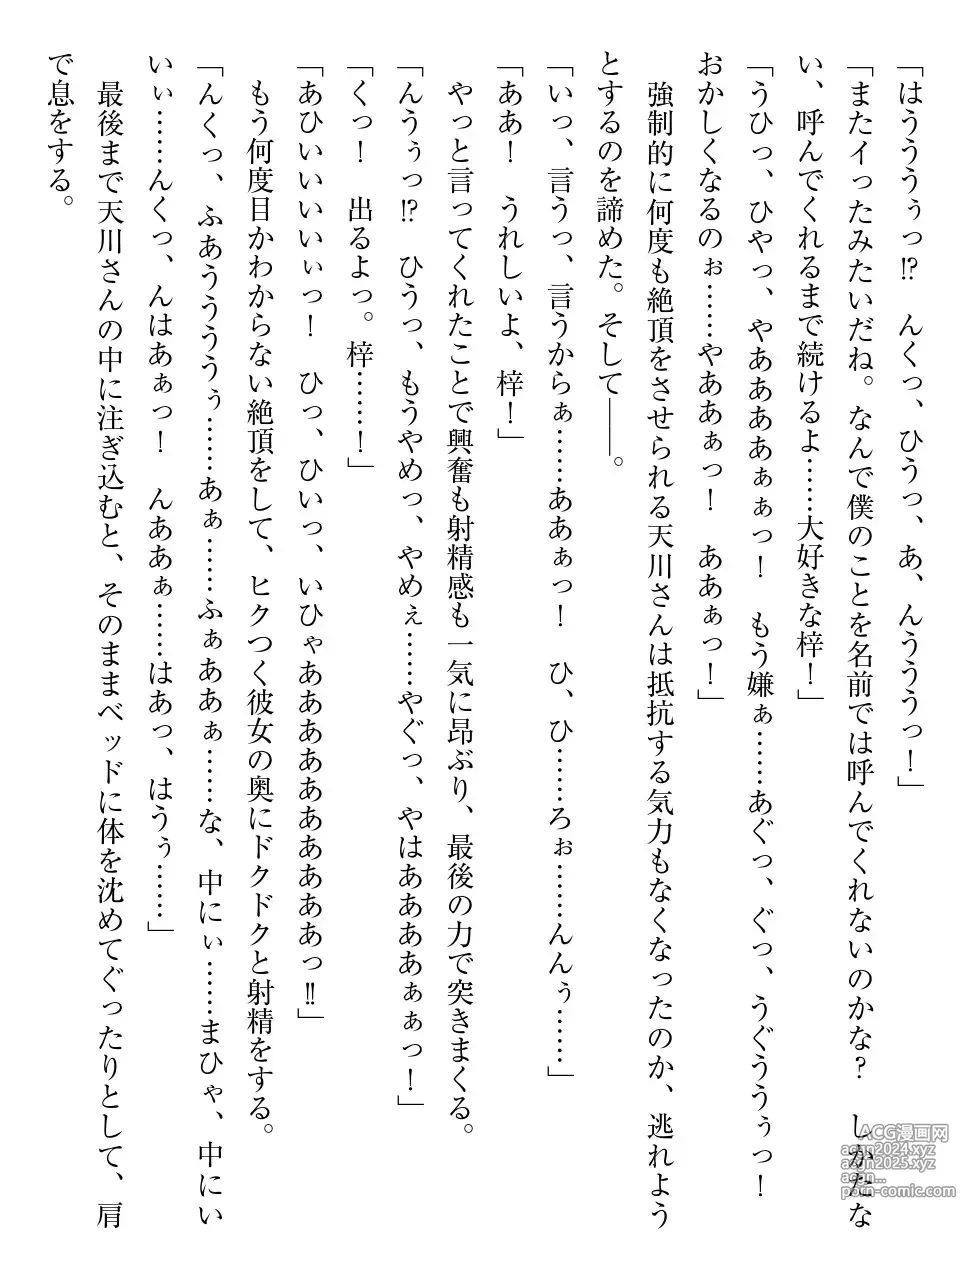 「はうううぅっ!?　んくっ、ひうっ、あ、んうううっ！」
「またイったみたいだね。なんで僕のことを名前では呼んでくれないのかな？　しかたな
い、呼んでくれるまで続けるよ……大好きな梓！」
「うひっ、ひやっ、やああああぁぁっ！　もう嫌ぁ……あぐっ、ぐっ、うぐううぅっ！
おかしくなるのぉ……やああぁっ！　ああぁっ！」
　強制的に何度も絶頂をさせられる天川さんは抵抗する気力もなくなったのか、逃れよう
とするのを諦めた。そして――。
「いっ、言うっ、言うからぁ……ああぁっ！　ひ、ひ……ろぉ……んんぅ……」
「ああ！　うれしいよ、梓！」
　やっと言ってくれたことで興奮も射精感も一気に昂ぶり、最後の力で突きまくる。
「んうぅっ!?　ひうっ、もうやめっ、やめぇ……やぐっ、やはああああぁぁっ！」
「くっ！　出るよっ。梓……！」
「あひいいいいぃっ！　ひっ、ひいっ、いひゃああああああああああああっ!!」
　もう何度目かわからない絶頂をして、ヒクつく彼女の奥にドクドクと射精をする。
「んくっ、ふあうううううぅ……あぁ……ふぁああぁ……な、中にぃ……まひゃ、中にい
いぃ……んくっ、んはあぁっ！　んああぁ……はあっ、はうぅ……」
　最後まで天川さんの中に注ぎ込むと、そのままベッドに体を沈めてぐったりとして、肩
で息をする。
ACG漫画网
acgn2024.xyz
acgn2025.xyz
acgn...
porn-comic.com